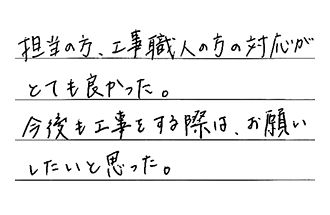 担当の方、工事職人の方の対応が
とても良かった。
今後も工事をする際は、お願い
したいと思った。